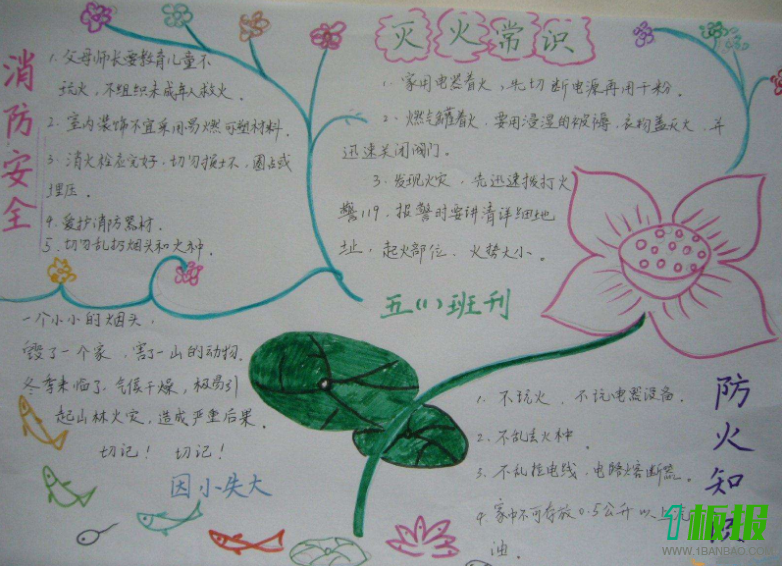 消防安全
1. 父母师长要教育儿童不
玩火,不组织未成年人救火。
2. 室内装饰不宜采用易燃可塑材料.
3. 消火栓应完好,切勿损坏、圈占或
埋压.
4. 爱护消防器材.
5. 切勿乱扔烟头和火种.
灭火常识
1. 家用电器着火,先切断电源再用干粉.
2. 燃气罐着火,要用浸湿的被褥、衣物盖灭火,并
迅速关闭阀门.
3. 发现火灾,先迅速拨打火
警119,报警时要讲清详细地
址、起火部位、火势大小.
五(1)班刊
一个小小的烟头,
毁了一个家,害了一山的动物.
冬季来临了,气候干燥,极易引
起山林火灾,造成严重后果.
切记! 切记!
因小失大
防火知
1. 不玩火、不玩电器设备.
2. 不乱丢火种.
3. 不乱拄电线,电路熔断
4. 家中不可存放0.5公升以上
油.
1板报
WWW.1BANBAO.COM